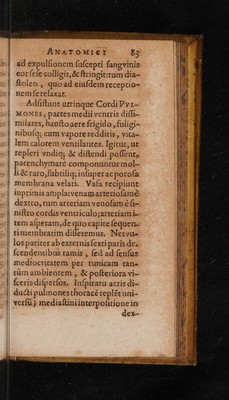 ANATOMICI 83
ad expulsionem suscepti sangvinis
cor sese colligit, & stringit: tum dia-
stolen, quo ad eiusdem receptio-
nem se relaxat.
Adsistunt utrinque Cordi PVL-
MONES, partes medii ventris dissi-
milares, hausto aere frigido, fuligi-
nibusq; cum vapore redditis, vita-
lem calorem ventilantes. Igitur, ut
repleri vndiq; & distendi possent,
parenchymate componuntur mol-
li & raro, subtiliq; insuper ac porosa
membrana velati. Vasa recipiunt
inprimis amplar venam arteriosam è
dextro, tum arteriam venosam è si-
nistro cordis ventriculo; arteriam i-
tem asperam, de quo capite sequen-
ti membratim disseremus. Nervu-
los pariter ab externis sexti paris de-
scendentibus ramis, sed ad sensus
mediocritatem per tunicam tan-
tùm ambientem, & posteriora vi-
sceris dispersos. Inspiratu aeris di-
ducti pulmones thoracẽ replẽt uni-
versũ; mediastini interpositione in
dex-